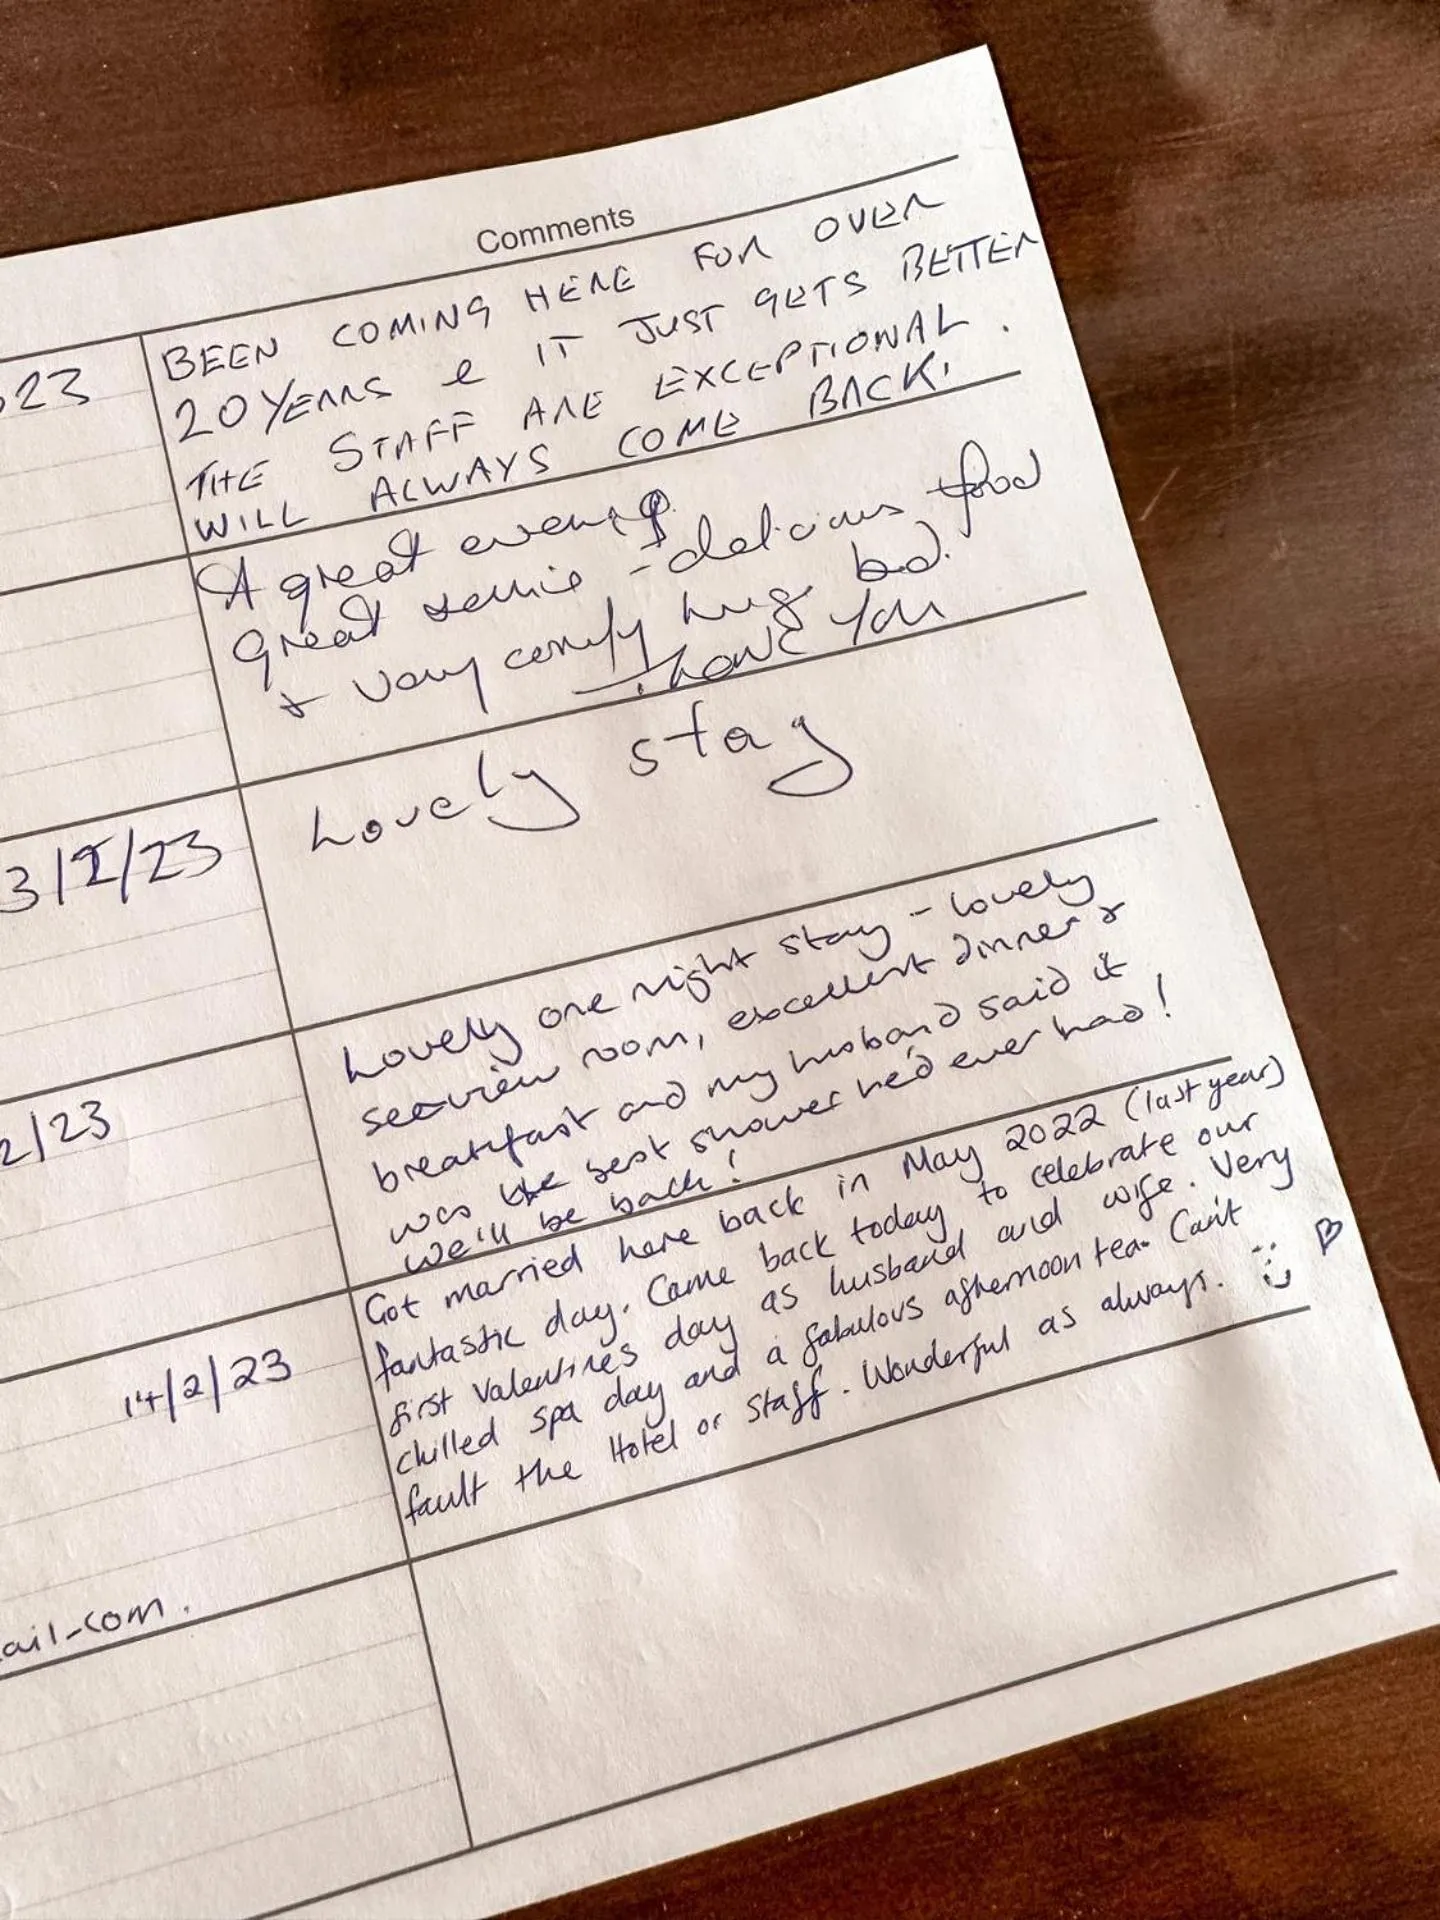 Comments
23
BEEN COMING HERE FOR OVER
20 YEARS & IT JUST GETS BETTER
THE STAFF ARE EXCEPTIONAL.
WILL ALWAYS COME BACK.
A great evening
great service - delicious food
+ very comfy huge bed.
Thank You
3/2/23
Lovely stay
2/23
Lovely one night stay - lovely
seaview room, excellent dinner &
breakfast and my husband said it
was the best shower he'd ever had!
we'll be back!
14/2/23
Got married here back in May 2022 (last year)
fantastic day. Came back today to celebrate our
first valentines day as husband and wife. Very
chilled spa day and a fabulous afternoon tea. Can't
fault the Hotel or Staff. Wonderful as always. :) ♡
ail.com.